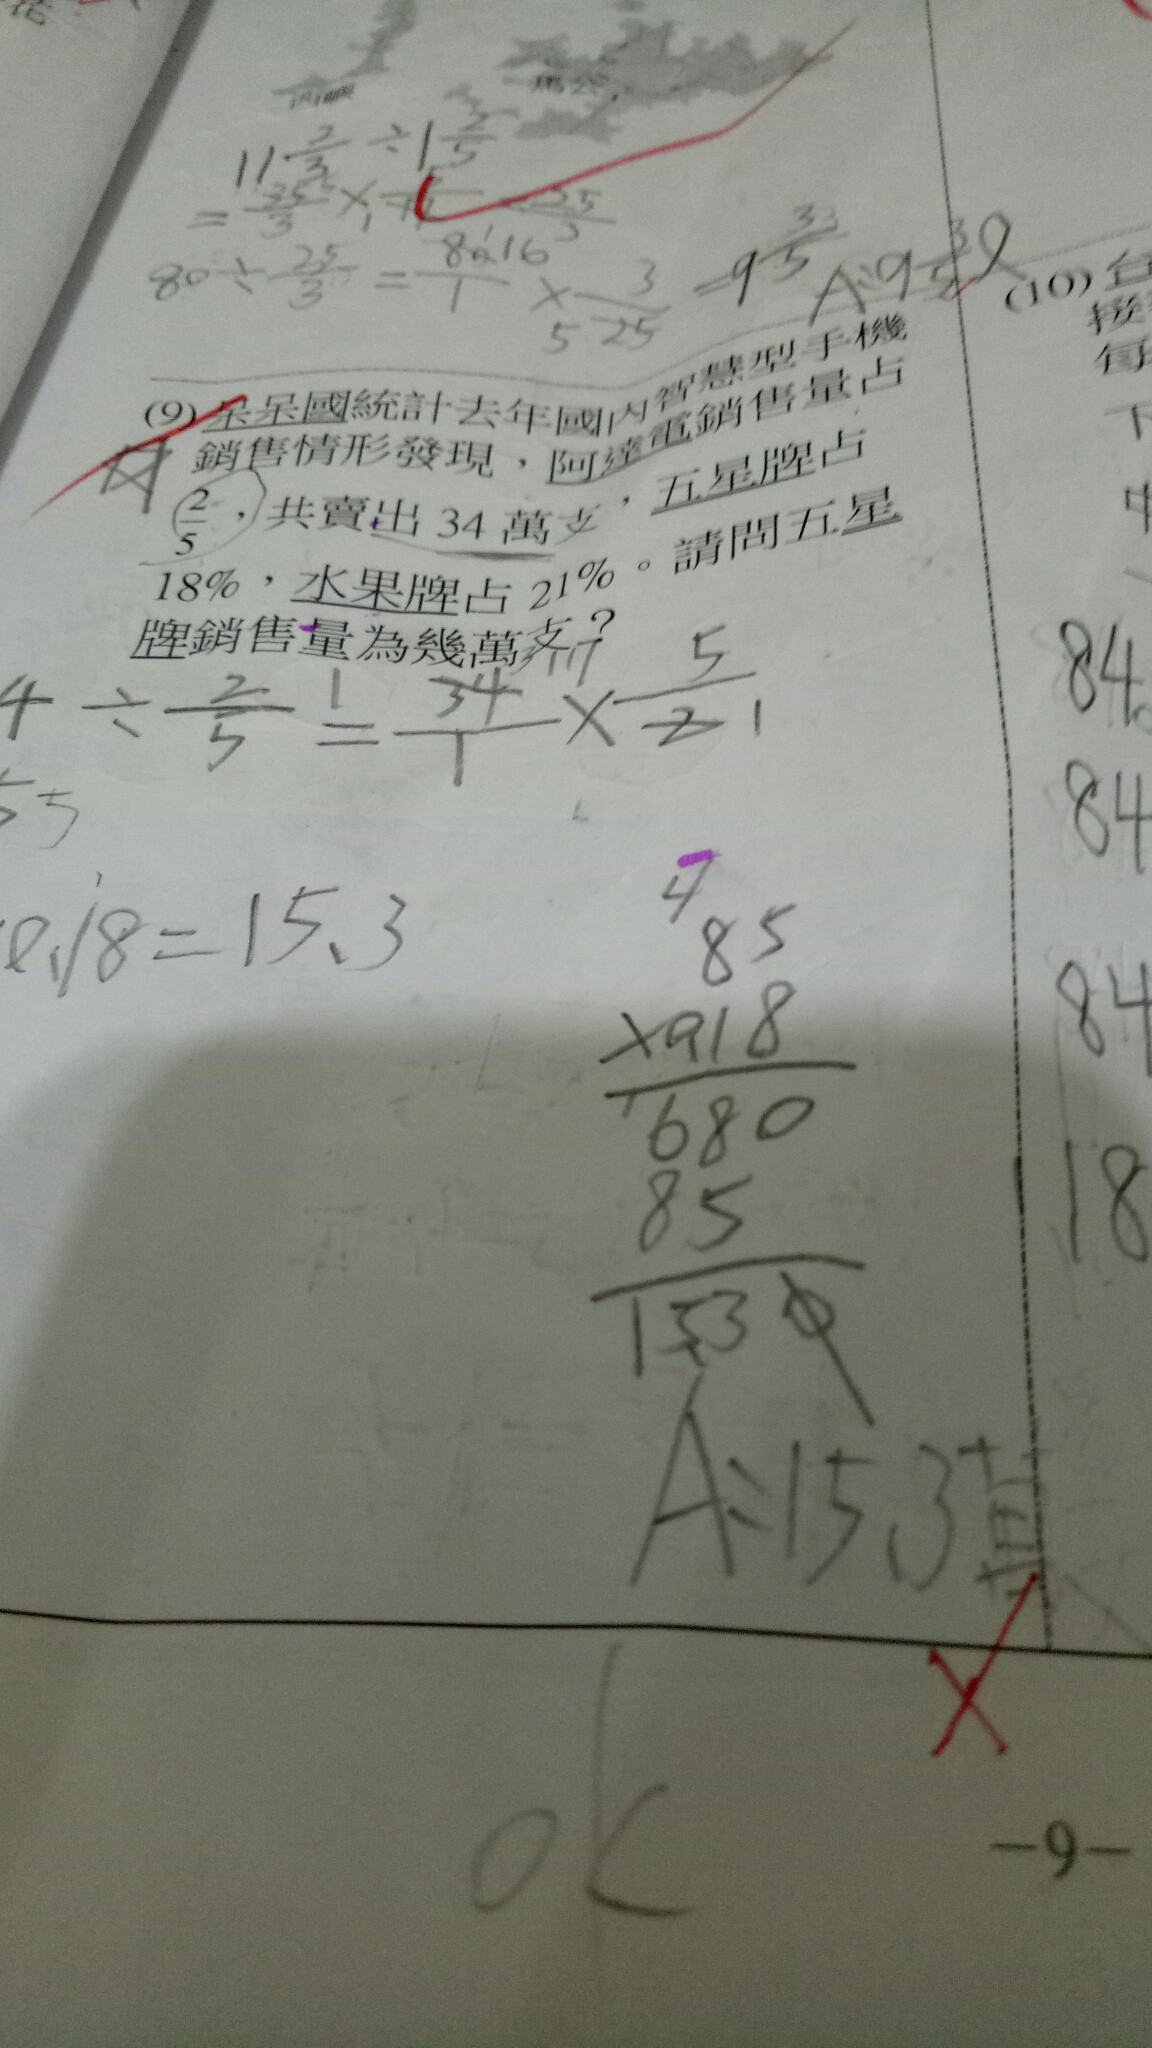 11 2/3 ÷ 1 2/5
= 35/3 ×
80 ÷ 25/3 = 80/1 × 3/25 = 9 3/5 A:9 3/5
(9) 呆呆國統計去年國內智慧型手機
銷售情形發現，阿達電銷售量占
2/5，共賣出 34 萬支，五星牌占
18%，水果牌占 21%。請問五星
牌銷售量為幾萬支？
4 ÷ 2/5 = 34/1 × 5/2
.18=15.3
4
85
×018
680
85
1530
A:15.3萬
ok
(10)
接
每
下
84
84
84
18
-9-